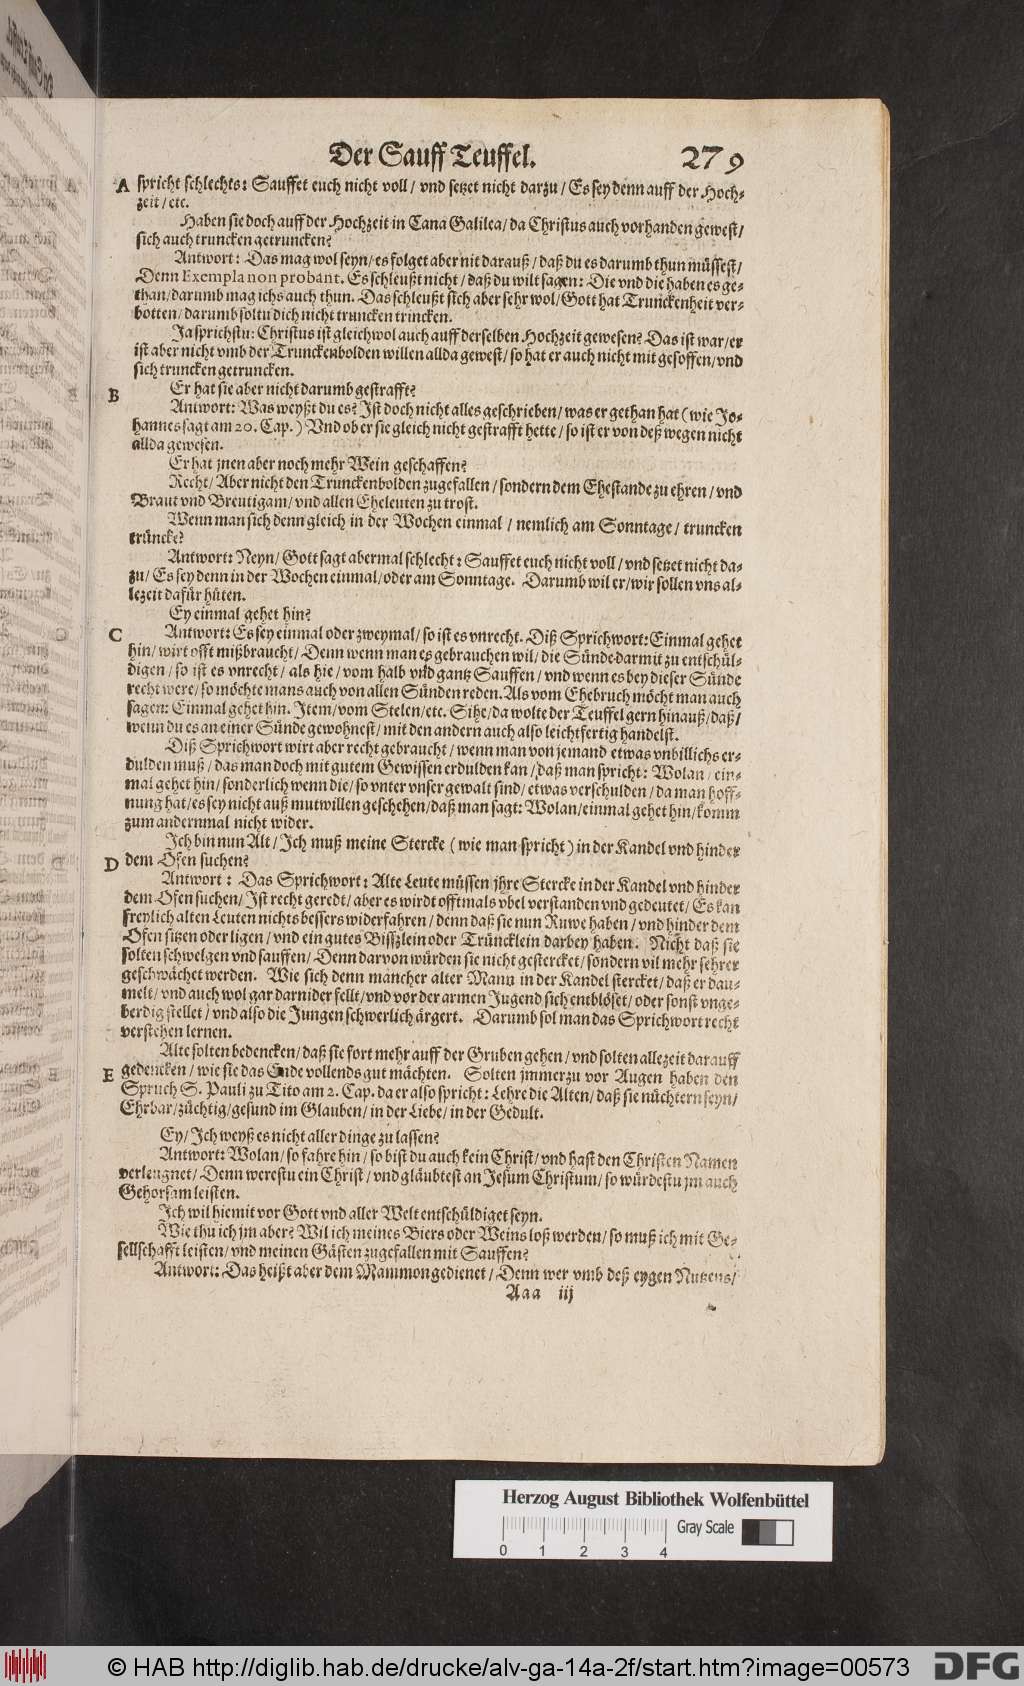 Der Sauff Teuffel. 279
A spricht schlechts: Sauffet euch nicht voll / vnd setzet nicht darzu / Es sey denn auff der Hoch-
zeit / etc.
Haben sie doch auff der Hochzeit in Cana Galilea / da Christus auch vorhanden gewest /
sich auch truncken getruncken?
Antwort: Das mag wol seyn / es folget aber nit darauß / daß du es darumb thun müssest /
Denn Exempla non probant. Es schleußt nicht / daß du wilt sagen: Die vnd die haben es ge-
than / darumb mag ichs auch thun. Das schleußt sich aber sehr wol / Gott hat Trunckenheit ver-
botten / darumb soltu dich nicht truncken trincken.
Ja sprichstu: Christus ist gleichwol auch auff derselben Hochzeit gewesen? Das ist war / er
ist aber nicht vmb der Trunckenbolden willen allda gewest / so hat er auch nicht mit gesoffen / vnd
sich truncken getruncken.
B Er hat sie aber nicht darumb gestrafft?
Antwort: Was weyßt du es? Ist doch nicht alles geschrieben / was er gethan hat (wie Jo-
hannes sagt am 20. Cap.) Vnd ob er sie gleich nicht gestrafft hette / so ist er von deß wegen nicht
allda gewesen.
Er hat jnen aber noch mehr Wein geschaffen?
Recht / Aber nicht den Trunckenbolden zugefallen / sondern dem Ehestande zu ehren / vnd
Braut vnd Breutigam / vnd allen Eheleuten zu trost.
Wenn man sich denn gleich in der Wochen einmal / nemlich am Sonntage / truncken
trüncke?
Antwort: Neyn / Gott sagt abermal schlecht: Sauffet euch nicht voll / vnd setzet nicht da-
zu / Es sey denn in der Wochen einmal / oder am Sonntage. Darumb wil er / wir sollen vns al-
lezeit dafür hüten.
Ey einmal gehet hin?
C Antwort: Es sey einmal oder zweymal / so ist es vnrecht. Diß Sprichwort: Einmal gehet
hin / wirt offt mißbraucht / Denn wenn man es gebrauchen wil / die Sünde darmit zu entschül-
digen / so ist es vnrecht / als hie / vom halb vnd gantz Sauffen / vnd wenn es bey dieser Sünde
recht were / so möchte mans auch von allen Sünden reden. Als vom Ehebruch möcht man auch
sagen: Einmal gehet hin. Item / vom Stelen / etc. Sihe / da wolte der Teuffel gern hinauß / daß /
wenn du es an einer Sünde gewohnest / mit den andern auch also leichtfertig handelst.
Diß Sprichwort wirt aber recht gebraucht / wenn man von jemand etwas vnbillichs er-
dulden muß / das man doch mit gutem Gewissen erdulden kan / daß man spricht: Wolan / ein-
mal gehet hin / sonderlich wenn die / so vnter vnser gewalt sind / etwas verschulden / da man hoff-
nung hat / es sey nicht auß mutwillen geschehen / daß man sagt: Wolan / einmal gehet hin / komm
zum andernmal nicht wider.
Ich bin nun Alt / Ich muß meine Stercke (wie man spricht) in der Kandel vnd hinder
D dem Ofen suchen?
Antwort: Das Sprichwort: Alte Leute müssen jhre Stercke in der Kandel vnd hinder
dem Ofen suchen / Ist recht geredt / aber es wirdt offtmals vbel verstanden vnd gedeutet / Es kan
freylich alten Leuten nichts bessers widerfahren / denn daß sie nun Ruwe haben / vnd hinder dem
Ofen sitzen oder ligen / vnd ein gutes Bisszlein oder Trüncklein darbey haben. Nicht daß sie
solten schwelgen vnd sauffen / Denn darvon würden sie nicht gestercket / sondern vil mehr sehrer
geschwächet werden. Wie sich denn mancher alter Mann in der Kandel stercket / daß er dau-
melt / vnd auch wol gar darnider fellt / vnd vor der armen Jugend sich entblöset / oder sonst vnge-
berdig stellet / vnd also die Jungen schwerlich ärgert. Darumb sol man das Sprichwort recht
verstehen lernen.
Alte solten bedencken / daß sie fort mehr auff der Gruben gehen / vnd solten allezeit darauff
E gedencken / wie sie das Ende vollends gut mächten. Solten jmmerzu vor Augen haben den
Spruch S. Pauli zu Tito am 2. Cap. da er also spricht: Lehre die Alten / daß sie nüchtern seyn /
Ehrbar / züchtig / gesund im Glauben / in der Liebe / in der Gedult.
Ey / Ich weyß es nicht aller dinge zu lassen?
Antwort: Wolan / so fahre hin / so bist du auch kein Christ / vnd hast den Christen Namen
verleugnet / Denn werestu ein Christ / vnd gläubtest an Jesum Christum / so würdestu jm auch
Gehorsam leisten.
Ich wil hiemit vor Gott vnd aller Welt entschüldiget seyn.
Wie thu ich jm aber? Wil ich meines Biers oder Weins loß werden / so muß ich mit Ge-
sellschafft leisten / vnd meinen Gästen zugefallen mit Sauffen?
Antwort: Das heißt aber dem Mammon gedienet / Denn wer vmb deß eygen Nutzens /
Aaa iij
Herzog August Bibliothek Wolfenbüttel
Gray Scale
0 1 2 3 4
© HAB http://diglib.hab.de/drucke/alv-ga-14a-2f/start.htm?image=00573
DFG